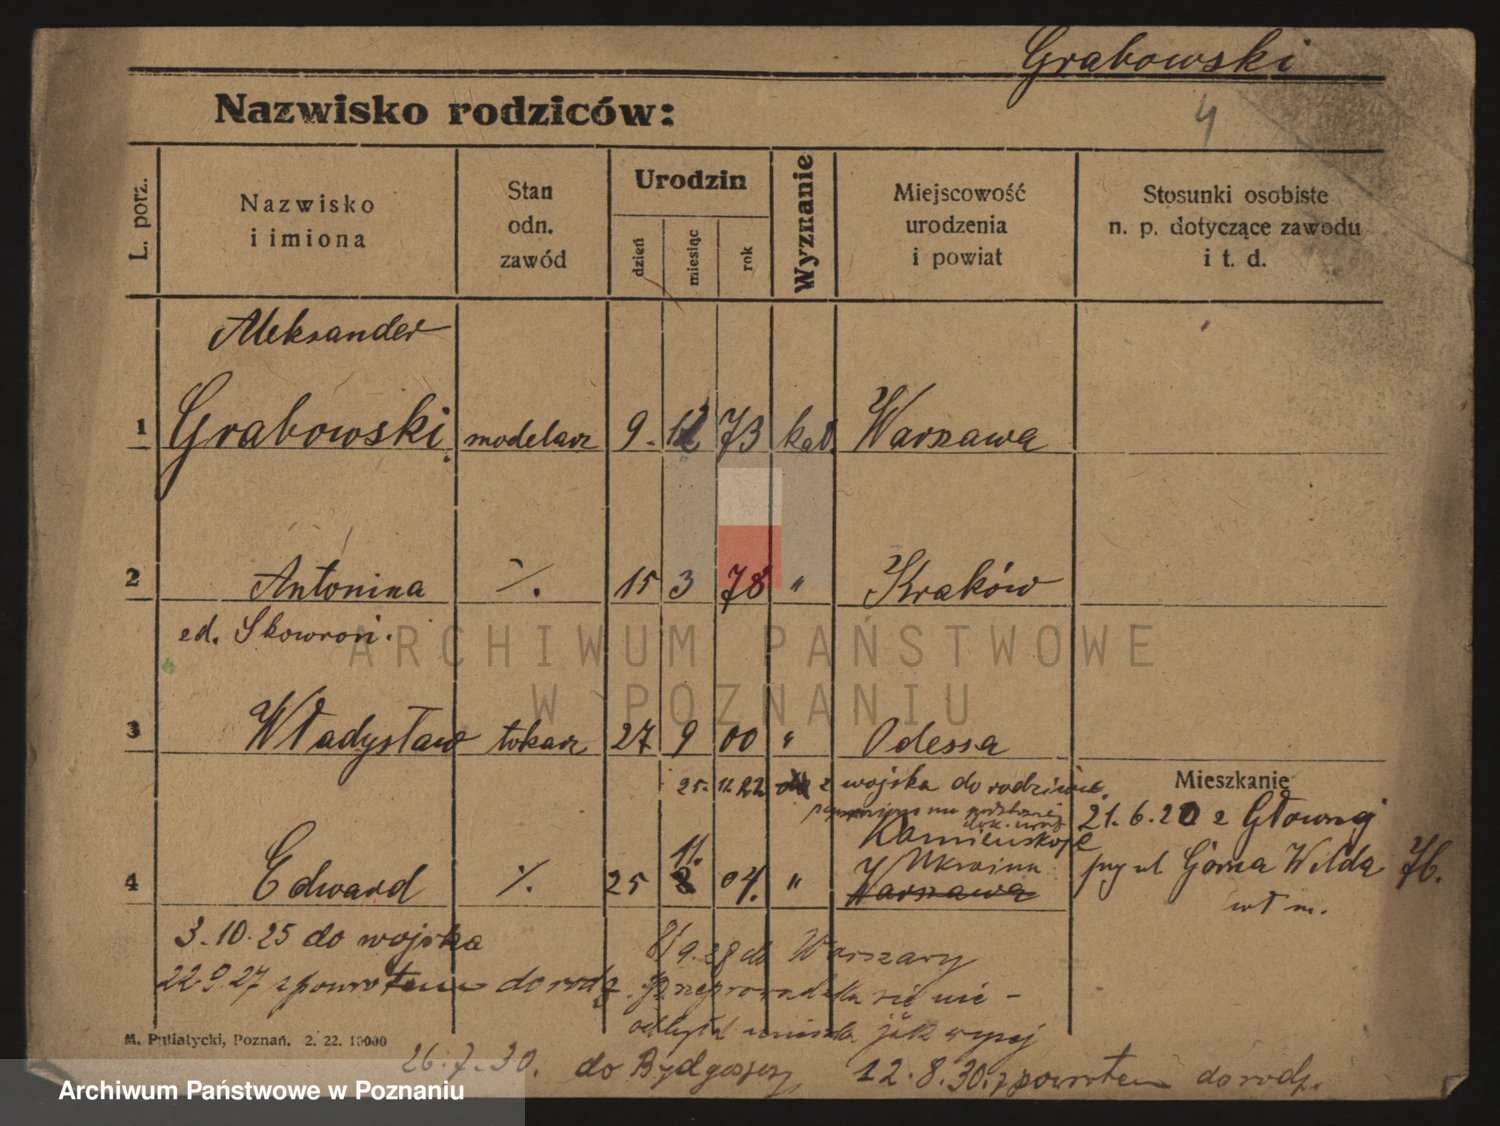 Grabowski
Nazwisko rodziców:
4
L. porz.
Nazwisko
i imiona
Stan
odn.
zawód
Urodzin
dzień
miesiąc
rok
Wyznanie
Miejscowość
urodzenia
i powiat
Stosunki osobiste
n. p. dotyczące zawodu
i t. d.
Aleksander
1 Grabowski modelarz 9. 12 73 kat. Warszawa
2 Antonina ./. 15 3 78 " Kraków
ed. Skowroń.
ARCHIWUM PAŃSTWOWE
W POZNANIU
3 Władysław tokarz 27 9 00 " Odessa
25. 11. 22 z wojska do rodziców.
Mieszkanie
21. 6. 20 z Głównej
Kamienskoje
Ukraina
przy ul Górna Wilda 76.
4 Edward ./. 25 11. 8 04. " Warszawa
wł m.
3. 10. 25 do wojska
8/9. 28 do Warszawy
22. 9. 27 z powrotem do rodz.
Przeprowadzka się nie -
odbyła mieszka jak wyżej
M. Putiatycki, Poznań. 2. 22. 10000
26. 7. 30. do Bydgoszczy 12. 8. 30. z powrotem do rodz.
Archiwum Państwowe w Poznaniu